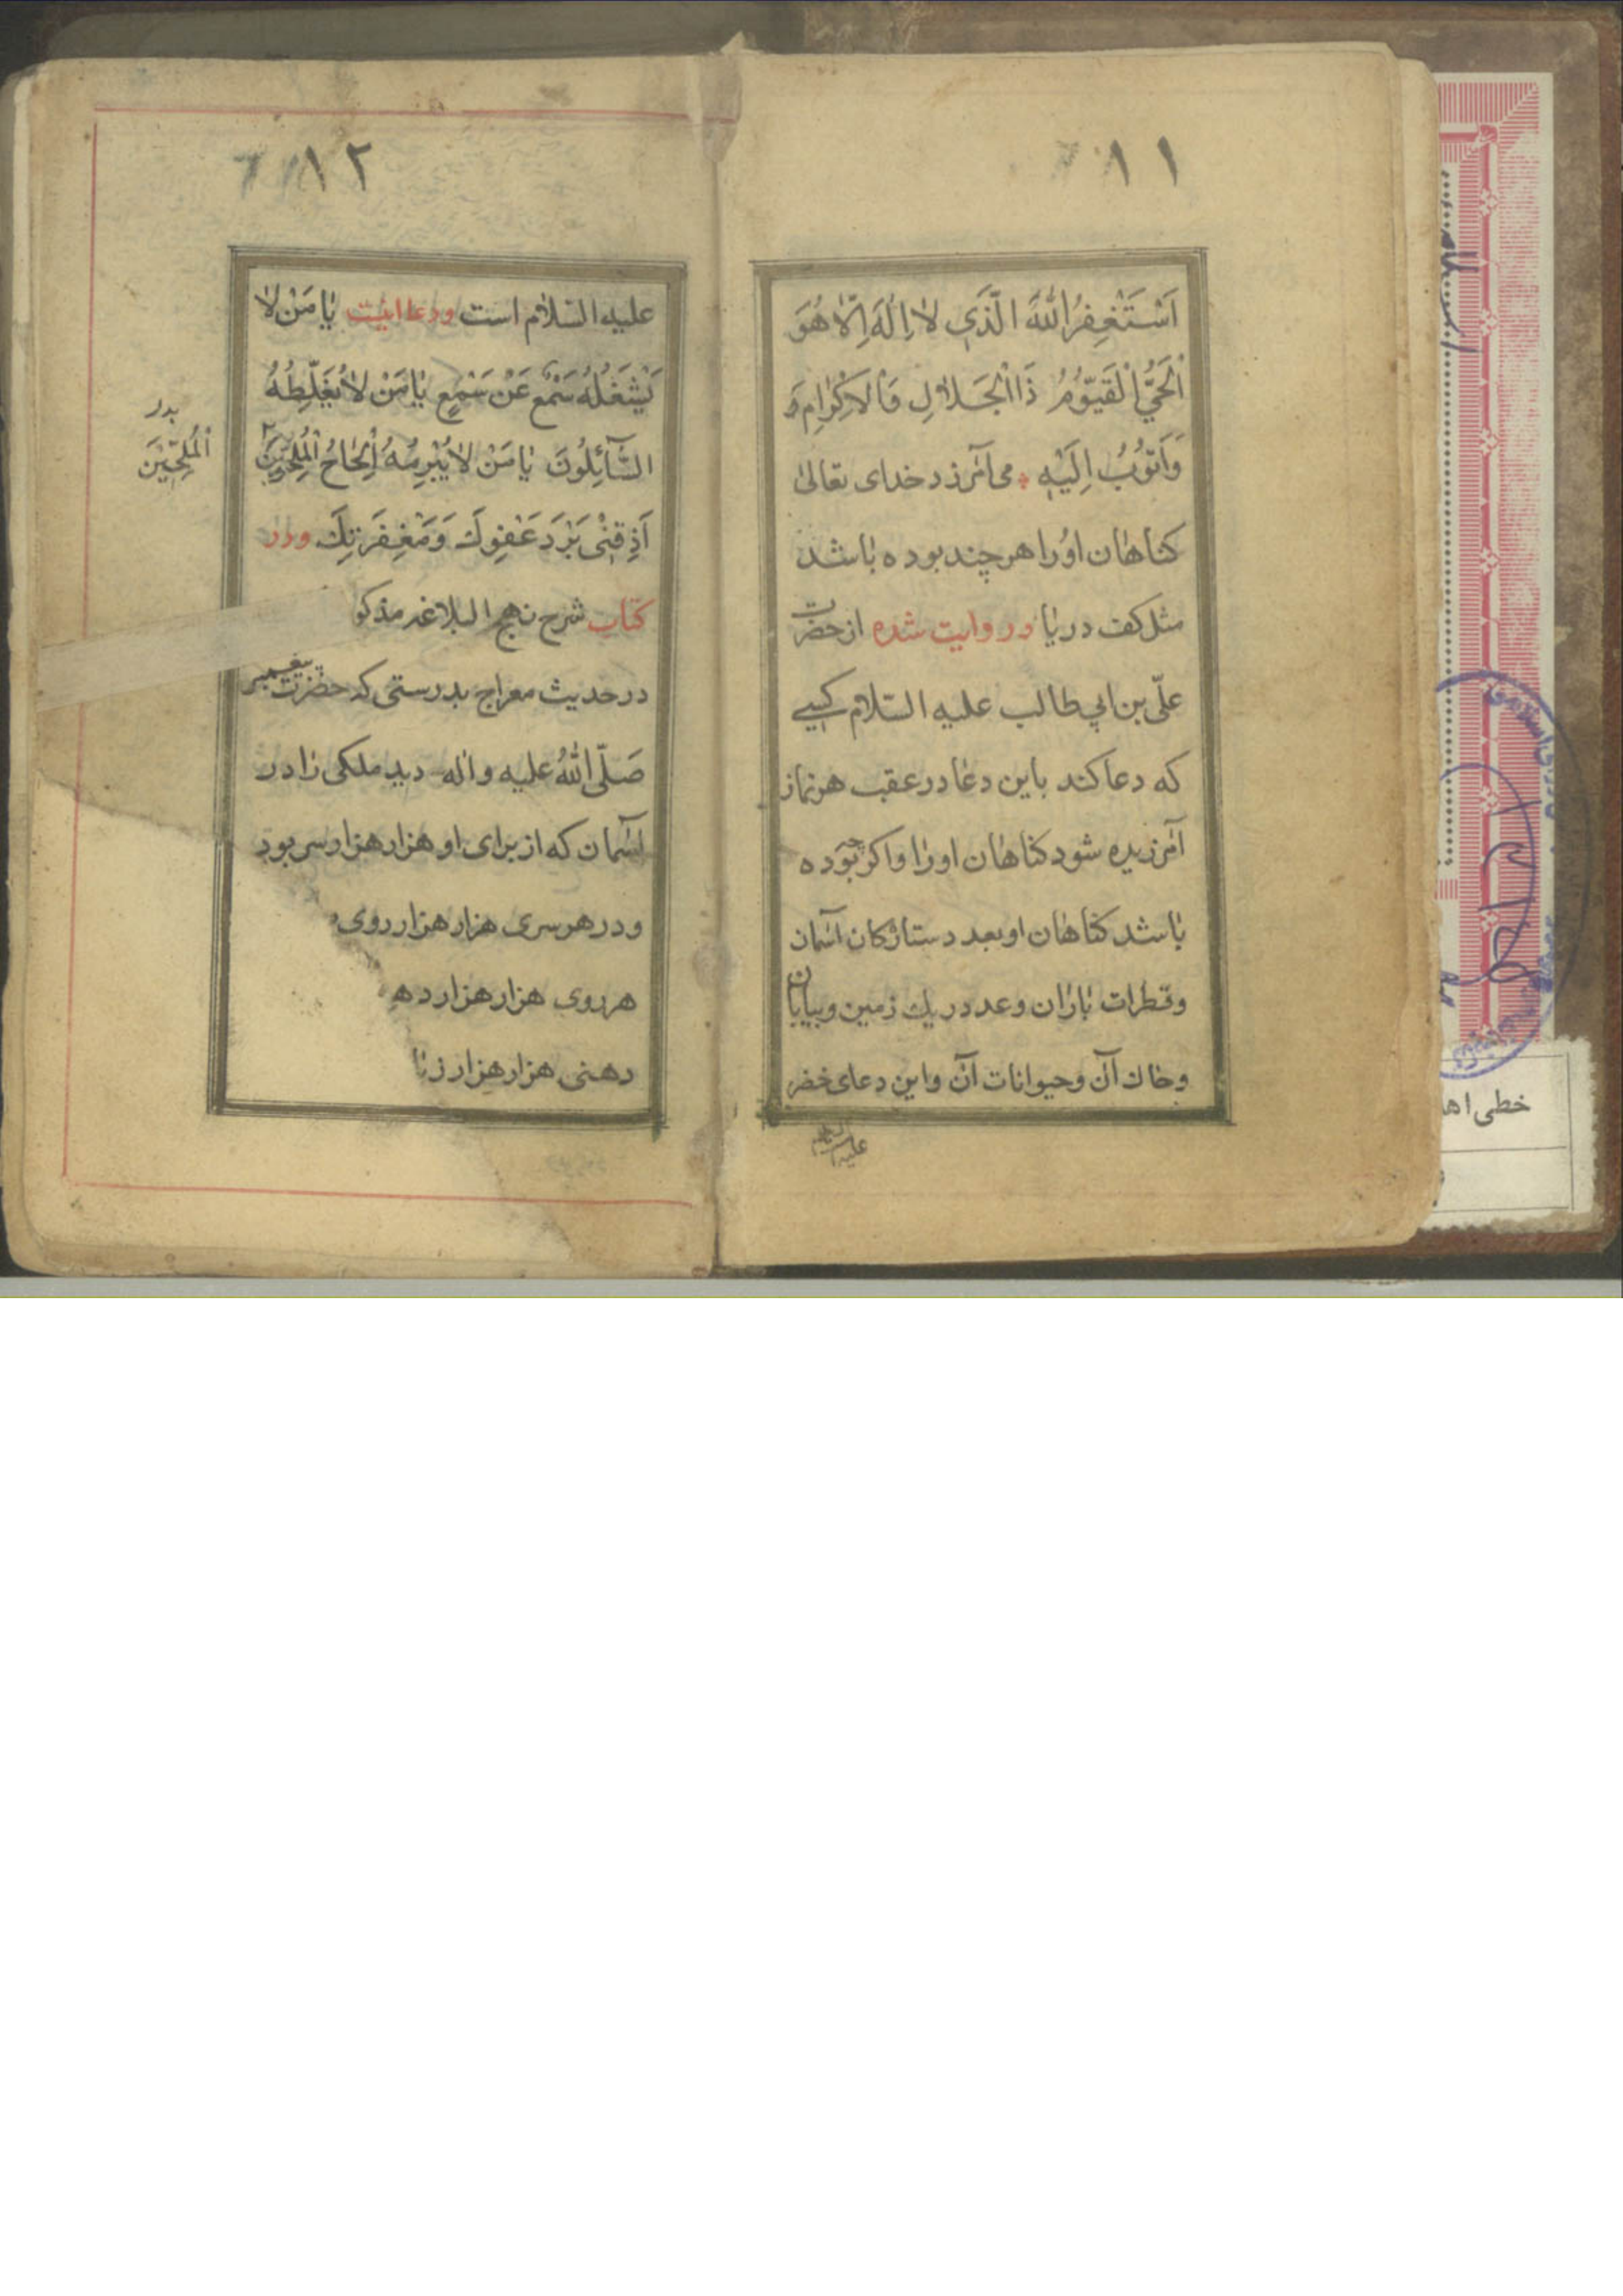 ١١
اَسْتَغْفِرُ اللّٰهَ الَّذَي لا اِلٰهَ اِلّا هُوَ
اَلْحَيُّ الْقَيّوُمُ ذَا الْجَلالِ وَالْاكْرٰامِ وَ
وَاَتوُبُ اِلَيْهِ مى آمرزد خداى تعالىٰ
كناهان اورا هر چند بوده باشد
مثل كف دريا در روايت شده از حضرت
علّى بن ابي طالب عليه السّلام كسے
كه دعا كند باين دعا در عقب هر نماز
آمرزيده شود كناهان او را واكر چه بوده
باشد كناهان او بعدد ستاركان آسمان
وقطرات باران وعدد ريك زمين وبيابان
وخاك آن وحيوانات آن واين دعاى خضر
عليه السلام
١٢
عليه السّلام است ودعا اينست يا مَنْ لا
يَشْغَلُهُ سَمْعٌ عَنْ سَمْعٍ يا مَنْ لا يُغَلِّطُهُ
السَّآئِلُونَ يا مَنْ لا يُبْرِمُهُ اِلْحاحُ الْمُلِحّينَ
بدر
اَلْمُلِحّيْنَ
اَذِقْنى بَرْدَ عَفْوِكَ وَمَغْفِرَتِكَ ودر
كتاب شرح نهج البلاغه مذكو
در حديث معراج بدرستى كه حضرت پيغمبر
صَلّى اللّٰهُ عليه واله ديد ملكى را در
آسمان كه از براى او هزار هزار سر بود
ودر هر سرى هزار هزار روى و
هر روى هزار هزار ده
دهنى هزار هزار زبا
خطى اهد